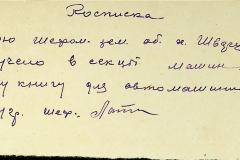 Росписка
ою шефом. зем. об. х. Швдец
учено в секций машин
у книгу для автомашин
гр. шеф.